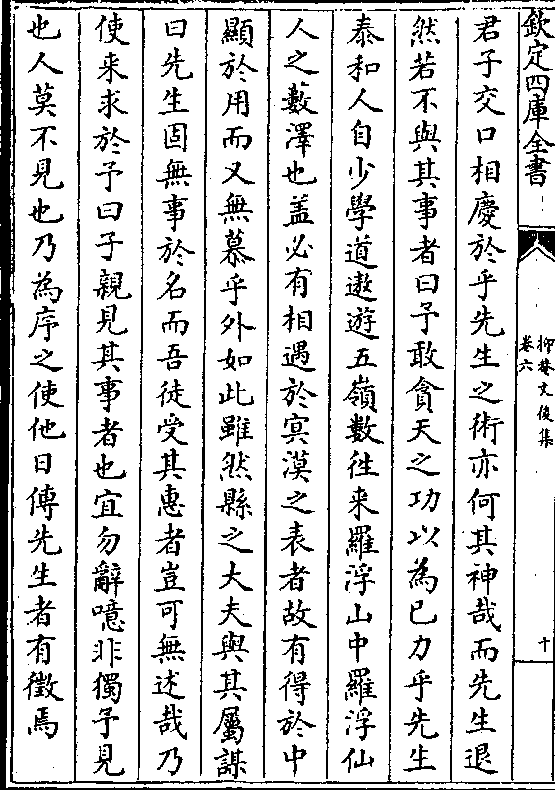 欽定四庫全書
抑菴文後集
卷六
十
君子交口相慶於乎先生之術亦何其神哉而先生退
然若不與其事者曰予敢貪天之功以為已力乎先生
泰和人自少學道遨遊五嶺數徃来羅浮山中羅浮仙
人之藪澤也盖必有相遇於㝠漠之表者故有得於中
顯於用而又無慕乎外如此雖然縣之大夫與其屬謀
曰先生固無事於名而吾徒受其惠者豈可無述哉乃
使来求於予曰子親見其事者也宜勿辭噫非獨予見
也人莫不見也乃為序之使他日傳先生者有徵焉